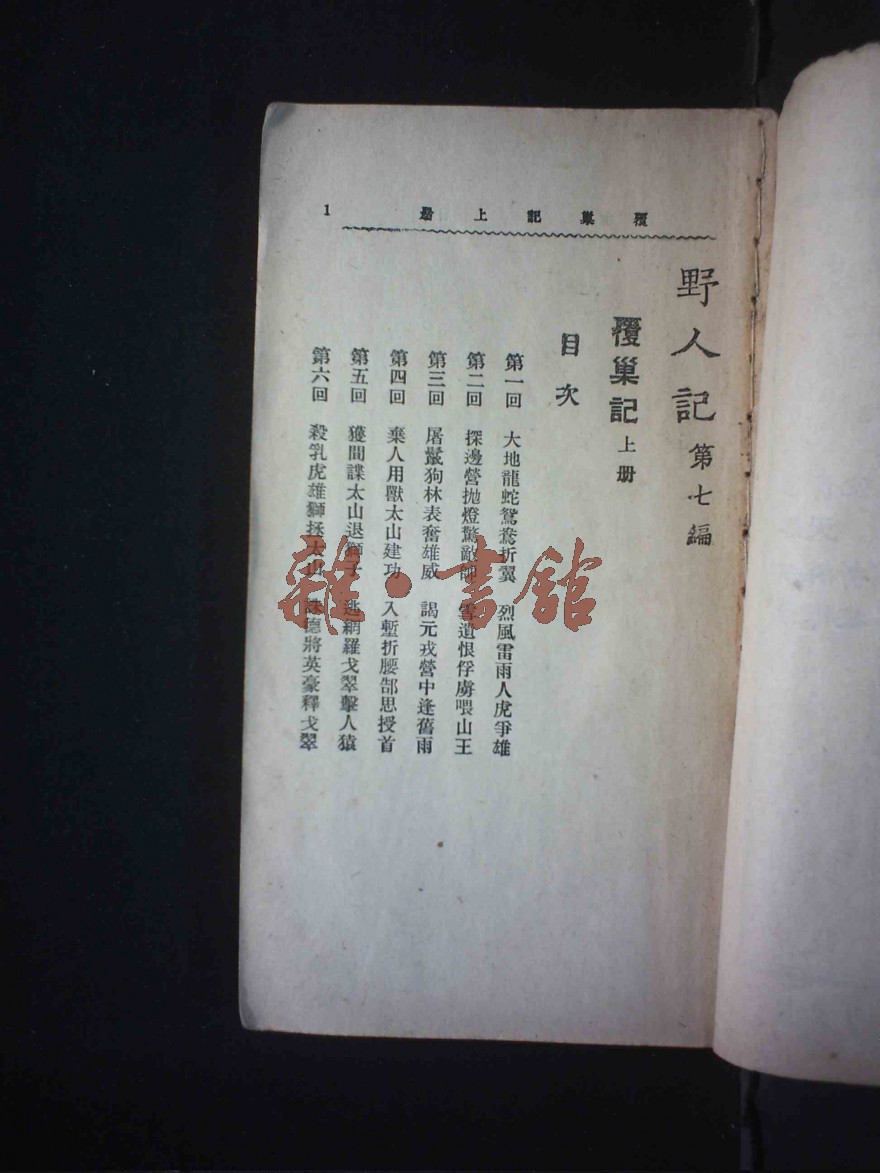 覆巢記上册
1
野人記 第七編
覆巢記 上册
目次
第一回 大地龍蛇鴛鴦折翼 烈風雷雨人虎爭雄
第二回 探邊營拋燈驚敵帥 雪遺恨俘虜喂山王
第三回 屠鬣狗林表奮雄威 謁元戎營中逢舊雨
第四回 棄人用獸太山建功 入塹折腰郜思授首
第五回 獲間諜太山退獅子 逃網羅戈翠擊人猿
第六回 殺乳虎雄獅拯太山 德將英豪釋戈翠
雜·書館